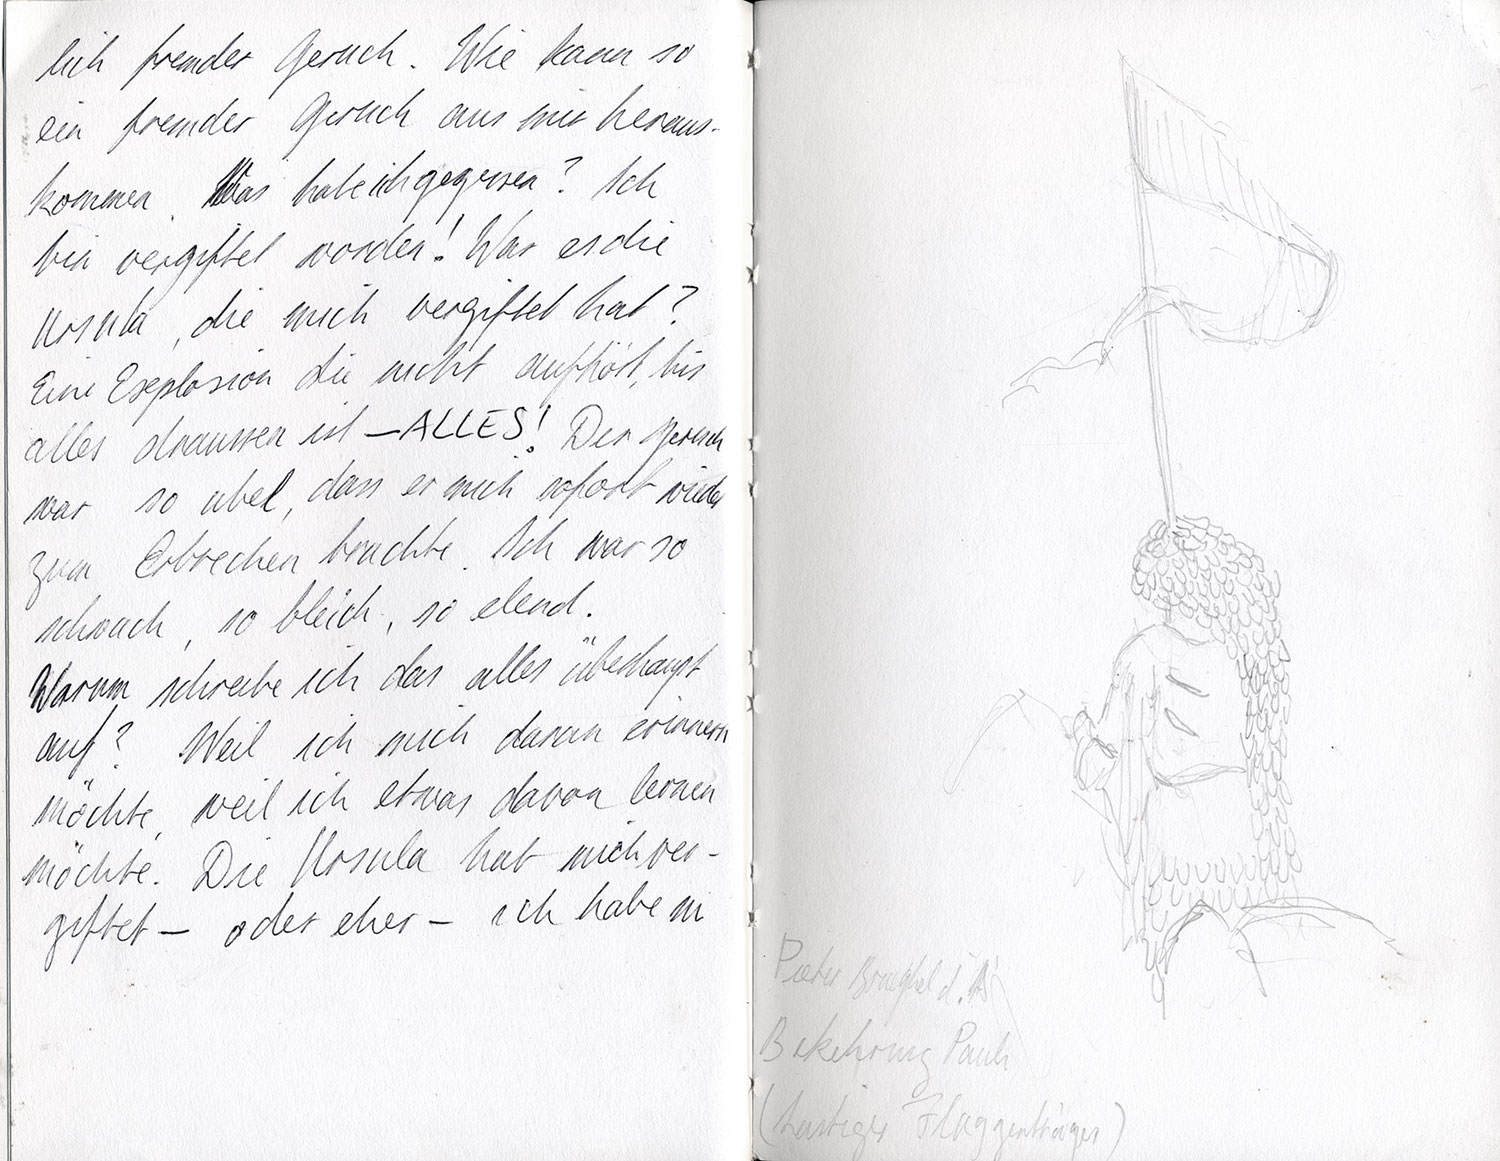 lich fremder Geruch. Wie kann so
ein fremder Geruch aus mir heraus-
kommen. Was habe ich gegessen? Ich
bin vergiftet worden! War es die
Ursula, die mich vergiftet hat?
Eine Explosion die nicht aufhört, bis
alles draussen ist – ALLES! Der Geruch
war so übel, dass er mich sofort wieder
zum Erbrechen brachte. Ich war so
schwach, so bleich, so elend.
Warum schreibe ich das alles überhaupt
auf? Weil ich mich daran erinnern
möchte, weil ich etwas davon lernen
möchte. Die Ursula hat mich ver-
giftet – oder eher – ich habe m
Pieter Brueghel d. Ä
Bekehrung Pauli
(Lustiger Flaggenträger)